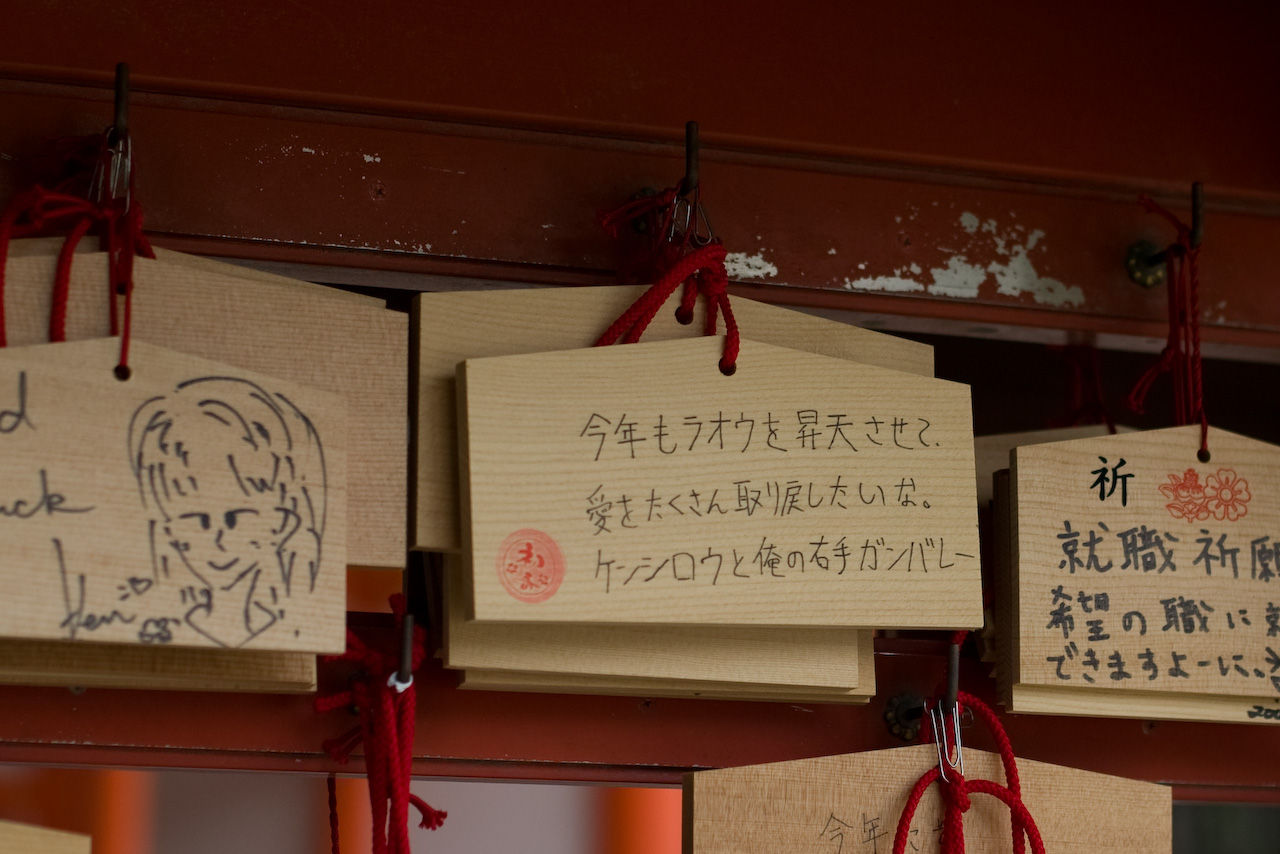 d
ck
Ken
今年もラオウを昇天させて、
愛をたくさん取り戻したいな。
ケンシロウと俺の右手ガンバレー
祈
就職祈願
希望の職に就
できますよーに。
今年こそ